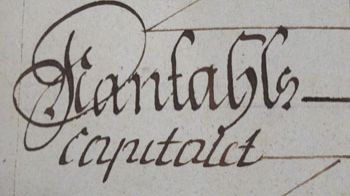 Kantahls
capitalet